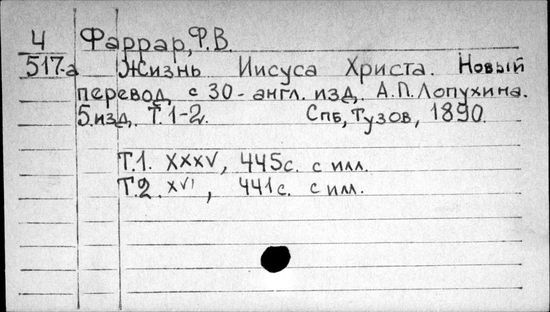 Ч Фаррар, Ф.В.
517-а Жизнь Иисуса Христа. Новый
перевод с 30-англ. изд. А.П. Лопухина.
5.изд. Т.1-2. Спб, Тузов, 1890.
Т.1. XXXV, 445с. с илл.
Т.2. XVI, 441с. с илл.